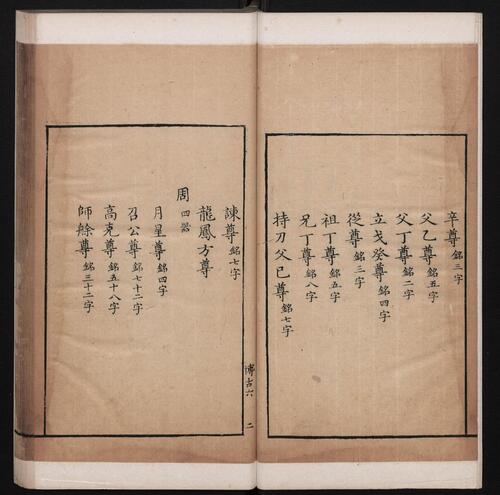 辛尊銘三字
父乙尊銘五字
父丁尊銘二字
立戈癸尊銘四字
從尊銘三字
祖丁尊銘五字
兄丁尊銘八字
持刀父已尊銘七字
博古六 二
諫尊銘七字
龍鳳方尊
周四器
月星尊銘四字
召公尊銘七十二字
高克尊銘五十八字
師艅尊銘三十二字